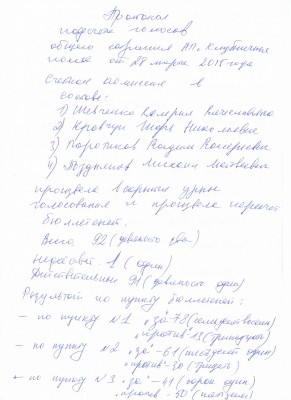 Протокол
подсчета голосов
общего собрания НП "Клубничная
поляна" от 28 марта 2015 года
Счетная комиссия в
составе:
1) Шевченко Валерия Вячеславовна
2) Кравчун Игорь Николаевич
3) Коротиков Вадим Валериевич
4) Михаил Матвеевич
произвела вскрытие урны
голосования и произвела пересчет
бюллетеней.
Всего 92 (девяносто два)
Недействит. 1 (один)
Действительных 91 (девяносто один)
Результат по пункту бюллетеней:
– по пункту N1 "за" - 78 (семьдесят восемь)
"против" 13 (тринадцать)
– по пункту N2 "за" - 61 (шестьдесят один)
"против" - 30 (тридцать)
– по пункту N3 "за" - 41 (сорок один)
"против" - 50 (пятьдесят)